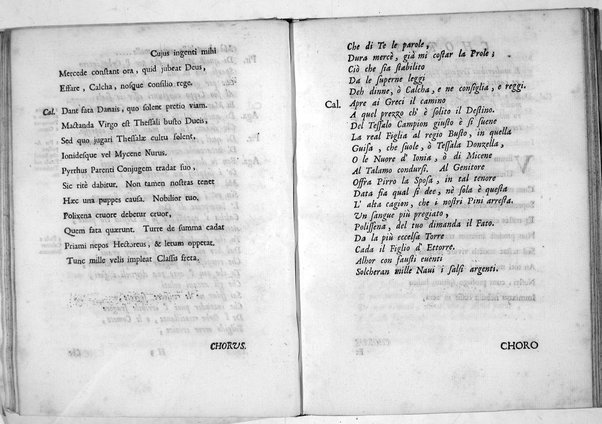 Cujus ingenti mihi
Mercede constant ora, quid jubeat Deus,
Effare, Calcha, nosque consilio rege.
Cal. Dant fata Danais, quo solent pretio viam.
Mactanda Virgo est Thessali busto Ducis,
Sed quo jugari Thessalæ cultu solent,
Ionidesque vel Mycenæ Nurus.
Pyrrhus Parenti Conjugem tradat suo,
Sic ritè dabitur. Non tamen nostras tenet
Hæc una puppes causa. Nobilior tuo,
Polixena cruore debetur cruor,
Quem fata quærunt. Turre de summa cadat
Priami nepos Hectoreus, & letum oppetat.
Tunc mille velis impleat Classis freta.
CHORUS.
Che di Te le parole,
Dura mercè, già mi costar la Prole;
Ciò che sia stabilito
Da le superne leggi
Deh dinne, ò Calcha, e ne consiglia, e reggi.
Cal. Apre ai Greci il camino
A quel prezzo ch' è solito il Destino.
Del Tessalo Campion giusto è si suene
La real Figlia al regio Busto, in quella
Guisa, che suole, ò Tessala Donzella,
O le Nuore d' Ionia, ò di Micene
Al Talamo condursi. Al Genitore
Offra Pirro la Sposa, in tal tenore
Data sia qual si dee, nè sola è questa
L' alta cagion, che i nostri Pini arresta.
Un sangue più pregiato,
Polissena, del tuo dimanda il Fato.
Da la più eccelsa Torre
Cada il Figlio d' Ettorre.
Alhor con fausti euenti
Solcheran mille Naui i falsi argenti.
CHORO